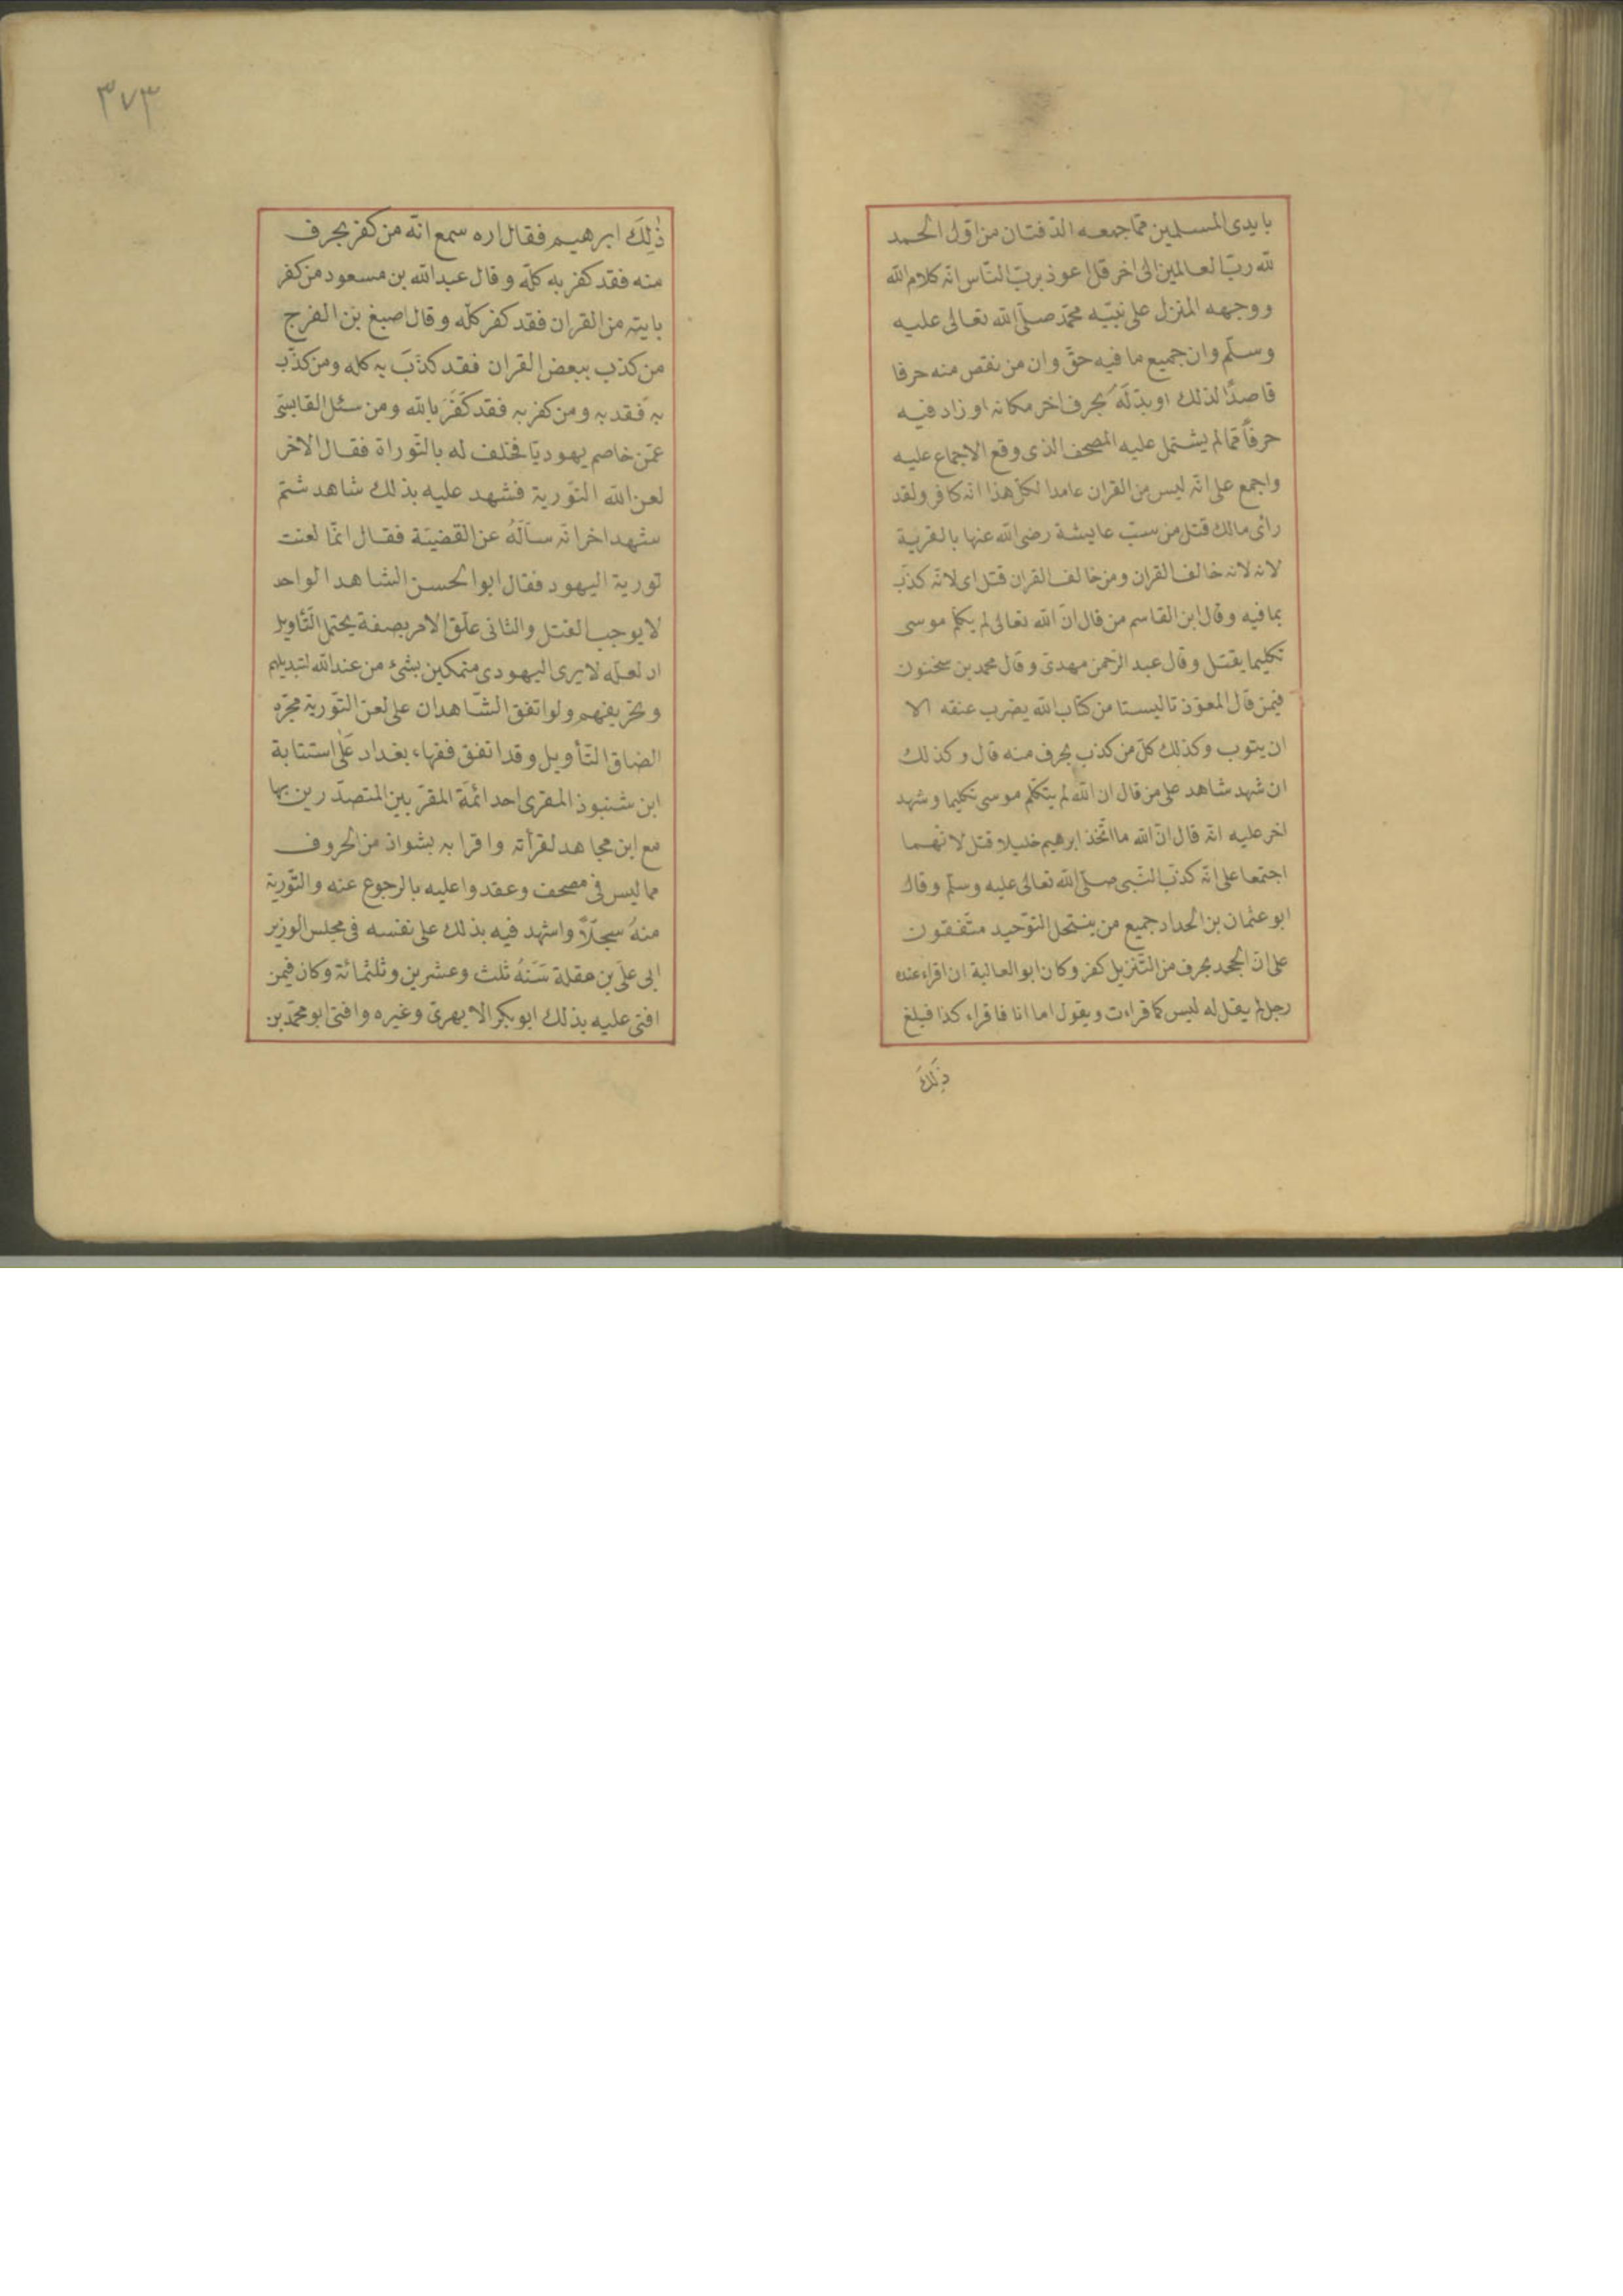 بايدى المسلمين ممّا جمعه الدّفتان من اوّل الحمد
لله ربّ العالمين الى اخر قل اعوذ بربّ النّاس انّه كلام الله
ووجهه المنزل على نبيّه محمّد صلّى الله تعالى عليه
وسلّم وان جميع ما فيه حقّ وان من نقص منه حرفا
قاصدًا لذلك او بدّلَهُ بحرف اخر مكانه او زاد فيه
حرفاً ممّا لم يشتمل عليه المصحف الذى وقع الاجماع عليه
واجمع على انّه ليس من القران عامدا لكلّ هذا انه كافر ولقد
رأى مالك قتل من سبّ عايشة رضى الله عنها بالفرية
لانه لانه خالف القران ومن خالف القران قتل اى لانّه كذّب
بما فيه وقال ابن القاسم من قال انّ الله تعالى لم يكلّم موسى
تكليما يقتل وقال عبد الرّحمن مهدىّ وقال محمد بن سحنون
فيمن قال المعوّذتا ليستا من كتاب الله يضرب عنقه الا
ان يتوب وكذلك كلّ من كذب بحرف منه قال وكذلك
ان شهد شاهد على من قال ان الله لم يتكلّم موسى تكليما وشهد
اخر عليه انّه قال انّ الله ما اتّخذ ابرهيم خليلا قتل لانّهما
اجتمعا على انّه كذّب النّبى صلّى الله تعالى عليه وسلّم وقال
ابو عثمان بن الحداد جميع من ينتحل التّوحيد متّفقون
على انّ الجحد بحرف من التّنزيل كفر وكان ابو العالية ان اقراء عنده
رجل لم يقل له ليس كما قراءت ويقول اما انا فاقراء كذا فبلغ
ذٰلِكَ
٣٧٣
ذٰلِكَ ابرهيم فقال اره سمع انّه من كفر بحرف
منه فقد كفر به كلّه وقال عبد الله بن مسعود من كفر
باية من القران فقد كفر كلّه وقال اصبغ بن الفرج
من كذب ببعض القران فقد كذّبَ به كله ومن كذّب
به فقد به ومن كفر به فقد كَفَرَ بالله ومن سئل القابسىّ
عمّن خاصم يهوديّا فحلف له بالتّوراة فقال الاخر
لعن الله التّورية فشهد عليه بذلك شاهد شتم
شهد اخر انّه سألَهُ عن القضيّة فقال انّما لعنت
تورية اليهود فقال ابو الحسن الشاهد الواحد
لا يوجب القتل والثانى علّق الامر بصفة يحتمل التّأويل
اد لعلّه لا يرى اليهودى متمكين بشئ من عند الله لتبديلهم
وتحريفهم ولو اتفق الشّاهدان على لعن التّورية مجرّه
الضاق التّأويل وقد اتفق فقهاء بغداد عَلٰى استتابة
ابن شنبوذ المقرى احد ائمّة المقرّبين المتصدّرين بها
مع ابن مجاهد لقرأته واقرا به بشواذ من الحروف
مما ليس فى مصحف وعقدوا عليه بالرجوع عنه والتّورية
منهُ سجلّاً واشهد فيه بذلك على نفسه فى مجلس الوزير
ابى علىّ بن مقلة سَنَهُ ثلث وعشرين وثلثمائة وكان فيمن
افتى عليه بذلك ابو بكر الابهرىّ وغيره وافتى ابو محمّد بن